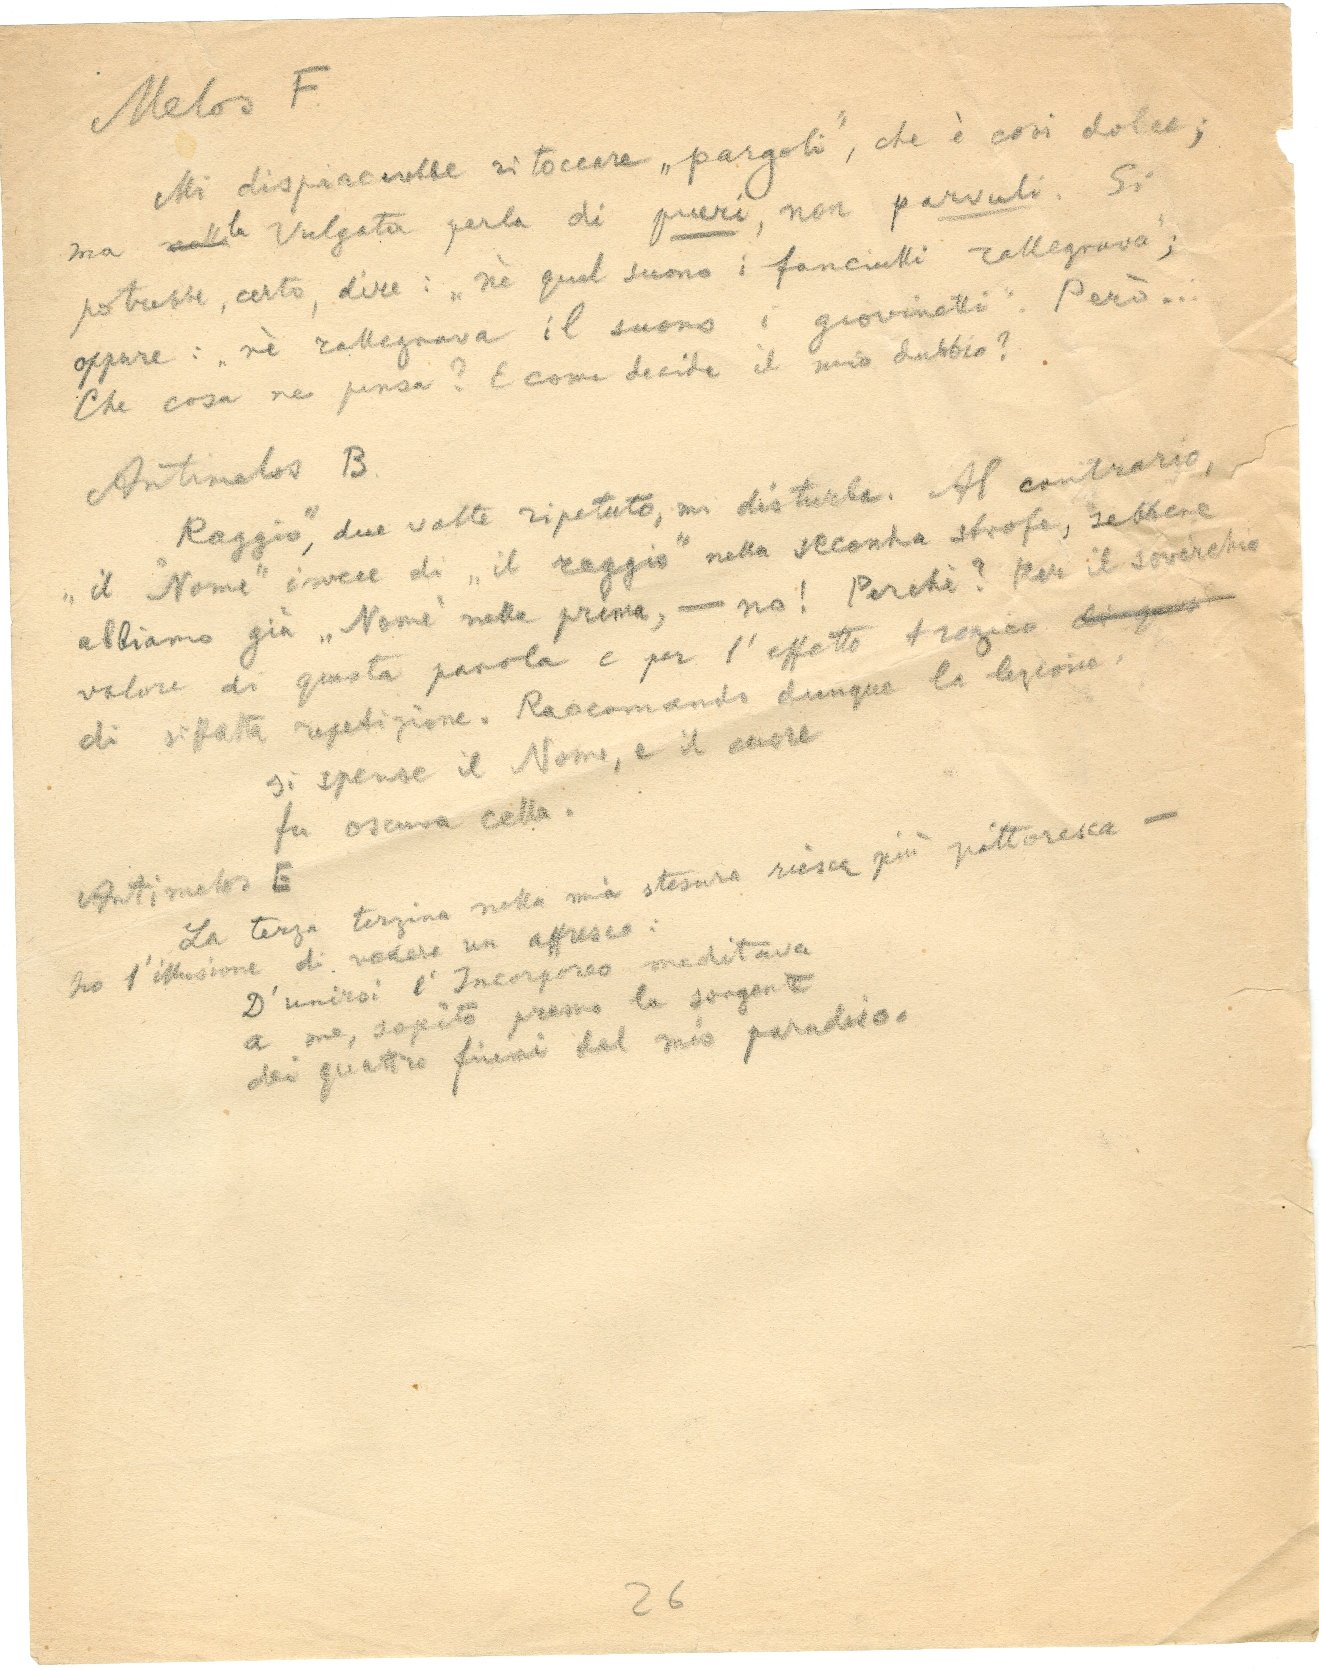 Melos F.
Mi dispiacerebbe ritoccare „pargoli”, che è così dolce;
ma nella la Vulgata parla di pueri, non parvuli. Si
potrebbe, certo, dire: „nè quel suono i fanciulli rallegrava”;
oppure: „nè rallegrava il suono i giovinetti”. Però...
Che cosa ne pensa? E come decide il mio dubbio?
Antimelos B.
„Raggio”, due volte ripetuto, mi disturba. Al contrario,
„il Nome” invece di „il raggio” nella seconda strofe, sebbene
abbiamo già „Nome” nella prima, — no! Perchè? Per il soverchio
valore di questa parola e per l'effetto tragico di ques
di siffatta repetizione. Raccomando dunque la lezione:
si spense il Nome, e il cuore
fu oscura cella.
Antimelos E
La terza terzina nella mia stesura riesce più pittoresca —
ho l'illusione di vedere un affresco:
D'unirsi l'Incorporeo meditava
a me, sopito presso la sorgente
dei quattro fiumi del mio paradiso.
26